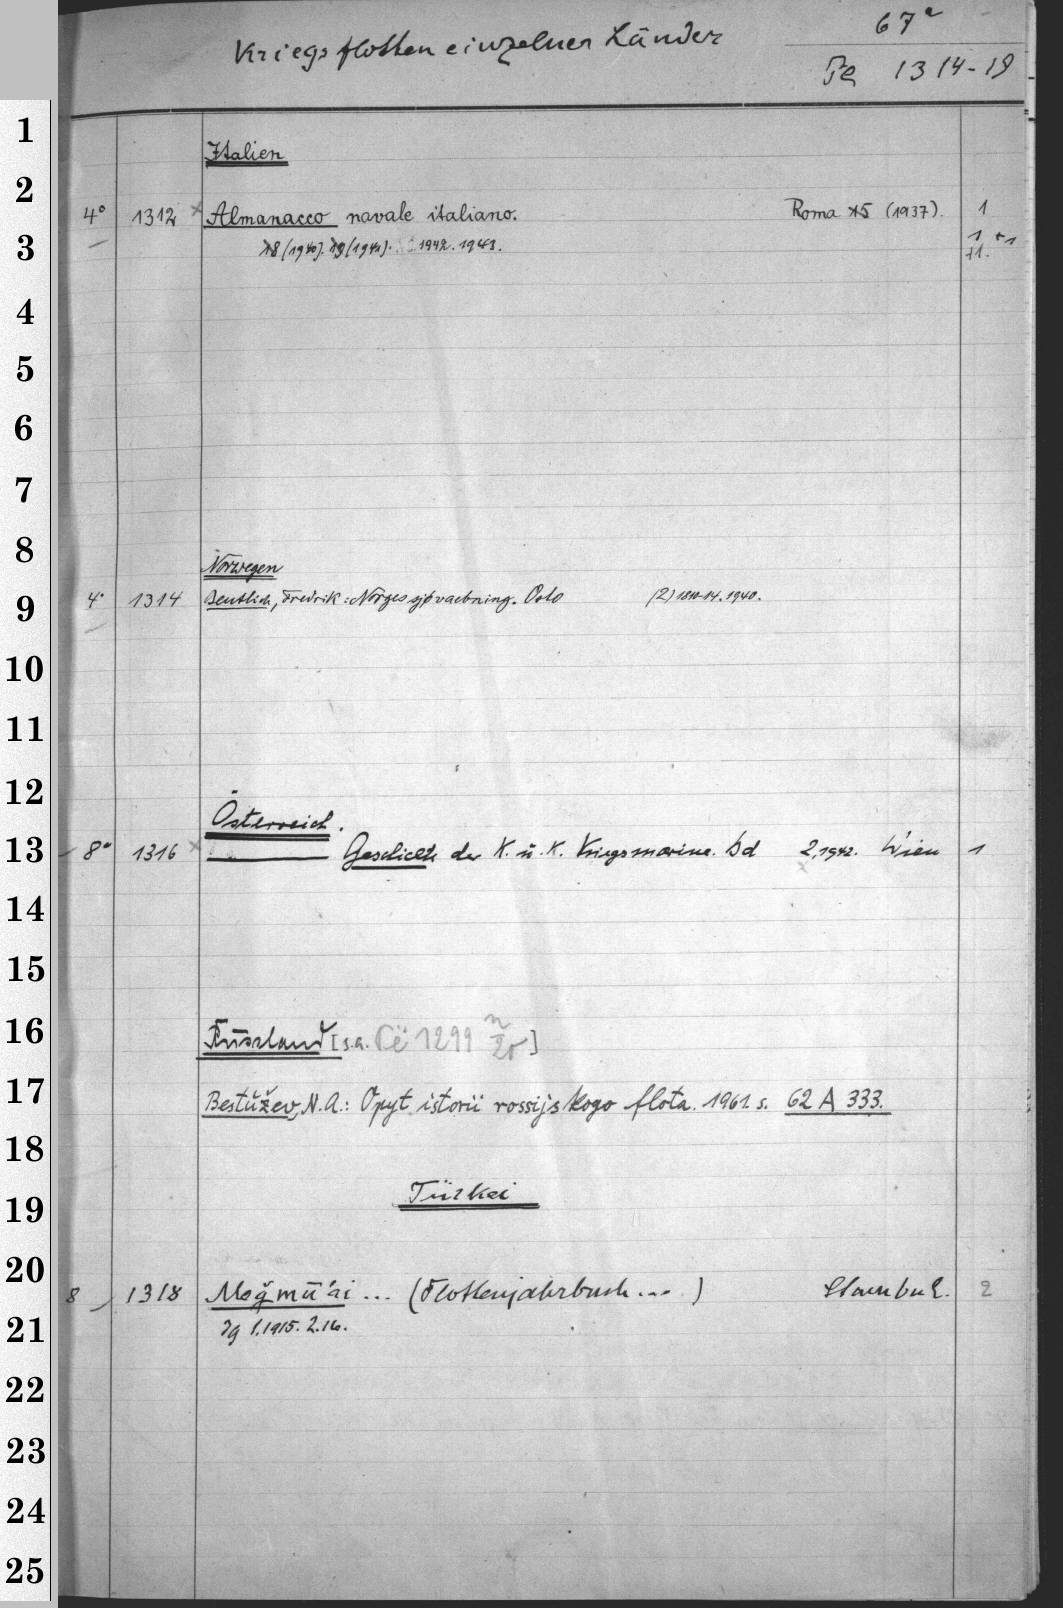 67a
Kriegsflotten einzelner Länder
1314-19
1
Italien
2
4° 1312 × Almanacco navale italiano. Roma 15 (1937). 1
3
18 (1940). 19 (1941). 1942. 1943. 1 +1
+1.
4
5
6
7
8
Norwegen
9
4° 1314 Beutlich, Fredrik: Norges sjøvaebning. Oslo (2) 1810-14. 1940.
10
11
12
Österreich.
13
8° 1316 × Geschichte der K. u. K. Kriegsmarine. Bd 2, 1942. Wien 1
14
15
16
Russland [s.a. 1299]
17
Bestužev, N.A.: Opyt istorii rossijskogo flota. 1961. s. 62 A 333.
18
Türkei
19
20
8 1318 ... (Flottenjahrbuch ... ) Stambul. 2
21
Jg 1.1915. 2.16.
22
23
24
25